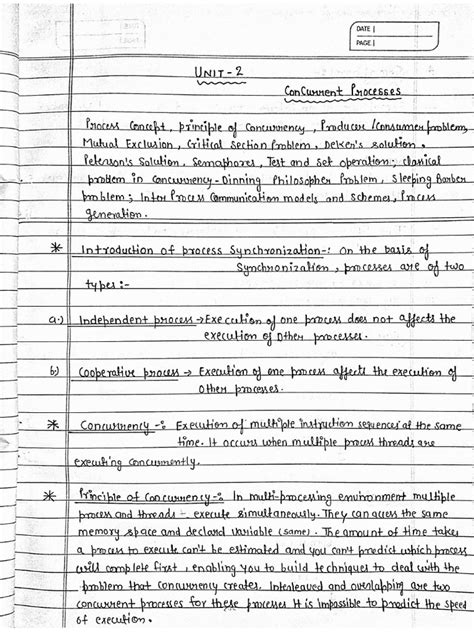 DATE |
PAGE |
UNIT-2
Concurrent Processes
Process Concept, principle of Concurrency, Producer/Consumer problem,
Mutual Exclusion, Critical Section Problem, Dekker's solution,
Peterson's Solution, Semaphores, Test and Set operation; classical
problem in Concurrency - Dinning Philosopher Problem, Sleeping Barber
problem; Inter Process Communication models and Schemes, Process
Generation.
* Introduction of process Synchronization-: On the basis of
Synchronization, processes are of two
types:-
a.) Independent process → Execution of one process does not affects the
execution of Other processes.
b) Cooperative process → Execution of one process affects the execution of
Other processes.
* Concurrency -: Execution of multiple instruction sequences at the same
time. It occurs when multiple process threads are
executing concurrently.
* Principle of Concurrency-: In multi-processing environment multiple
process and threads execute simultaneously. They can access the same
memory space and declard variable (same). The amount of time takes
a process to execute can't be estimated and you can't predict which process
will complete first, enabling you to build techniques to deal with the
problem that concurrency creates. Interleaved and overlapping are two
concurrent processes for these processes It is impossible to predict the speed
of execution.